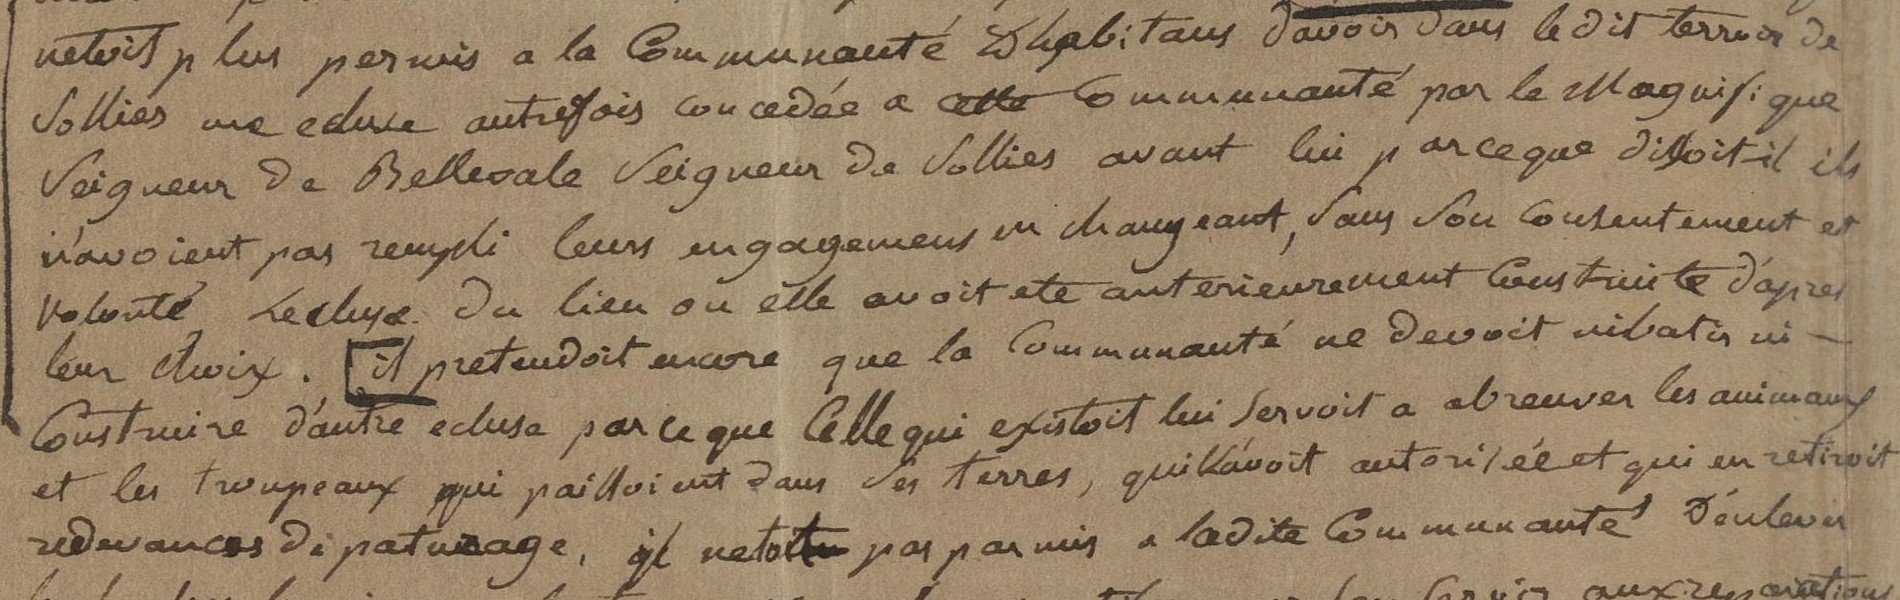 netoit plus permis a la Communauté D'habitans d'avoir dans le dit terroir de
Sollies une ecluse autrefois concedée a cette Communauté par le Magnifique
Seigneur de Bellevale Seigneur de Sollies avant lui parceque dissoit-il ils
n'avoient pas rempli leurs engagemens en changeant, sans son consentement et
volonté Lecluse du lieu ou elle avoit ete anterieurement Construite d'apres
leur choix. il pretendoit encore que la Communauté ne devoit ni batir ni -
Construire d'autre ecluse parceque Celle qui existoit lui servoit a abreuver les animaux
et les troupeaux qui paissoient dans ses terres, quil avoit autorisée et qui en retiroit
redevances de paturage, il netoit pas parmis a ladite Communauté D'enlever
servir aux reparations